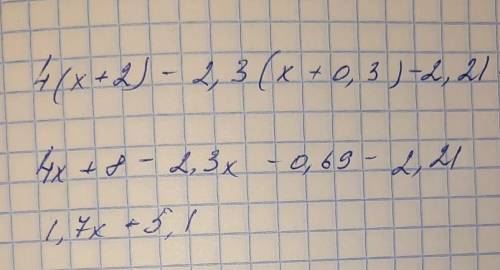 4(x+2) - 2,3(x+0,3)-2,21
4x+8-2,3x-0,69-2,21
1,7x+5,1